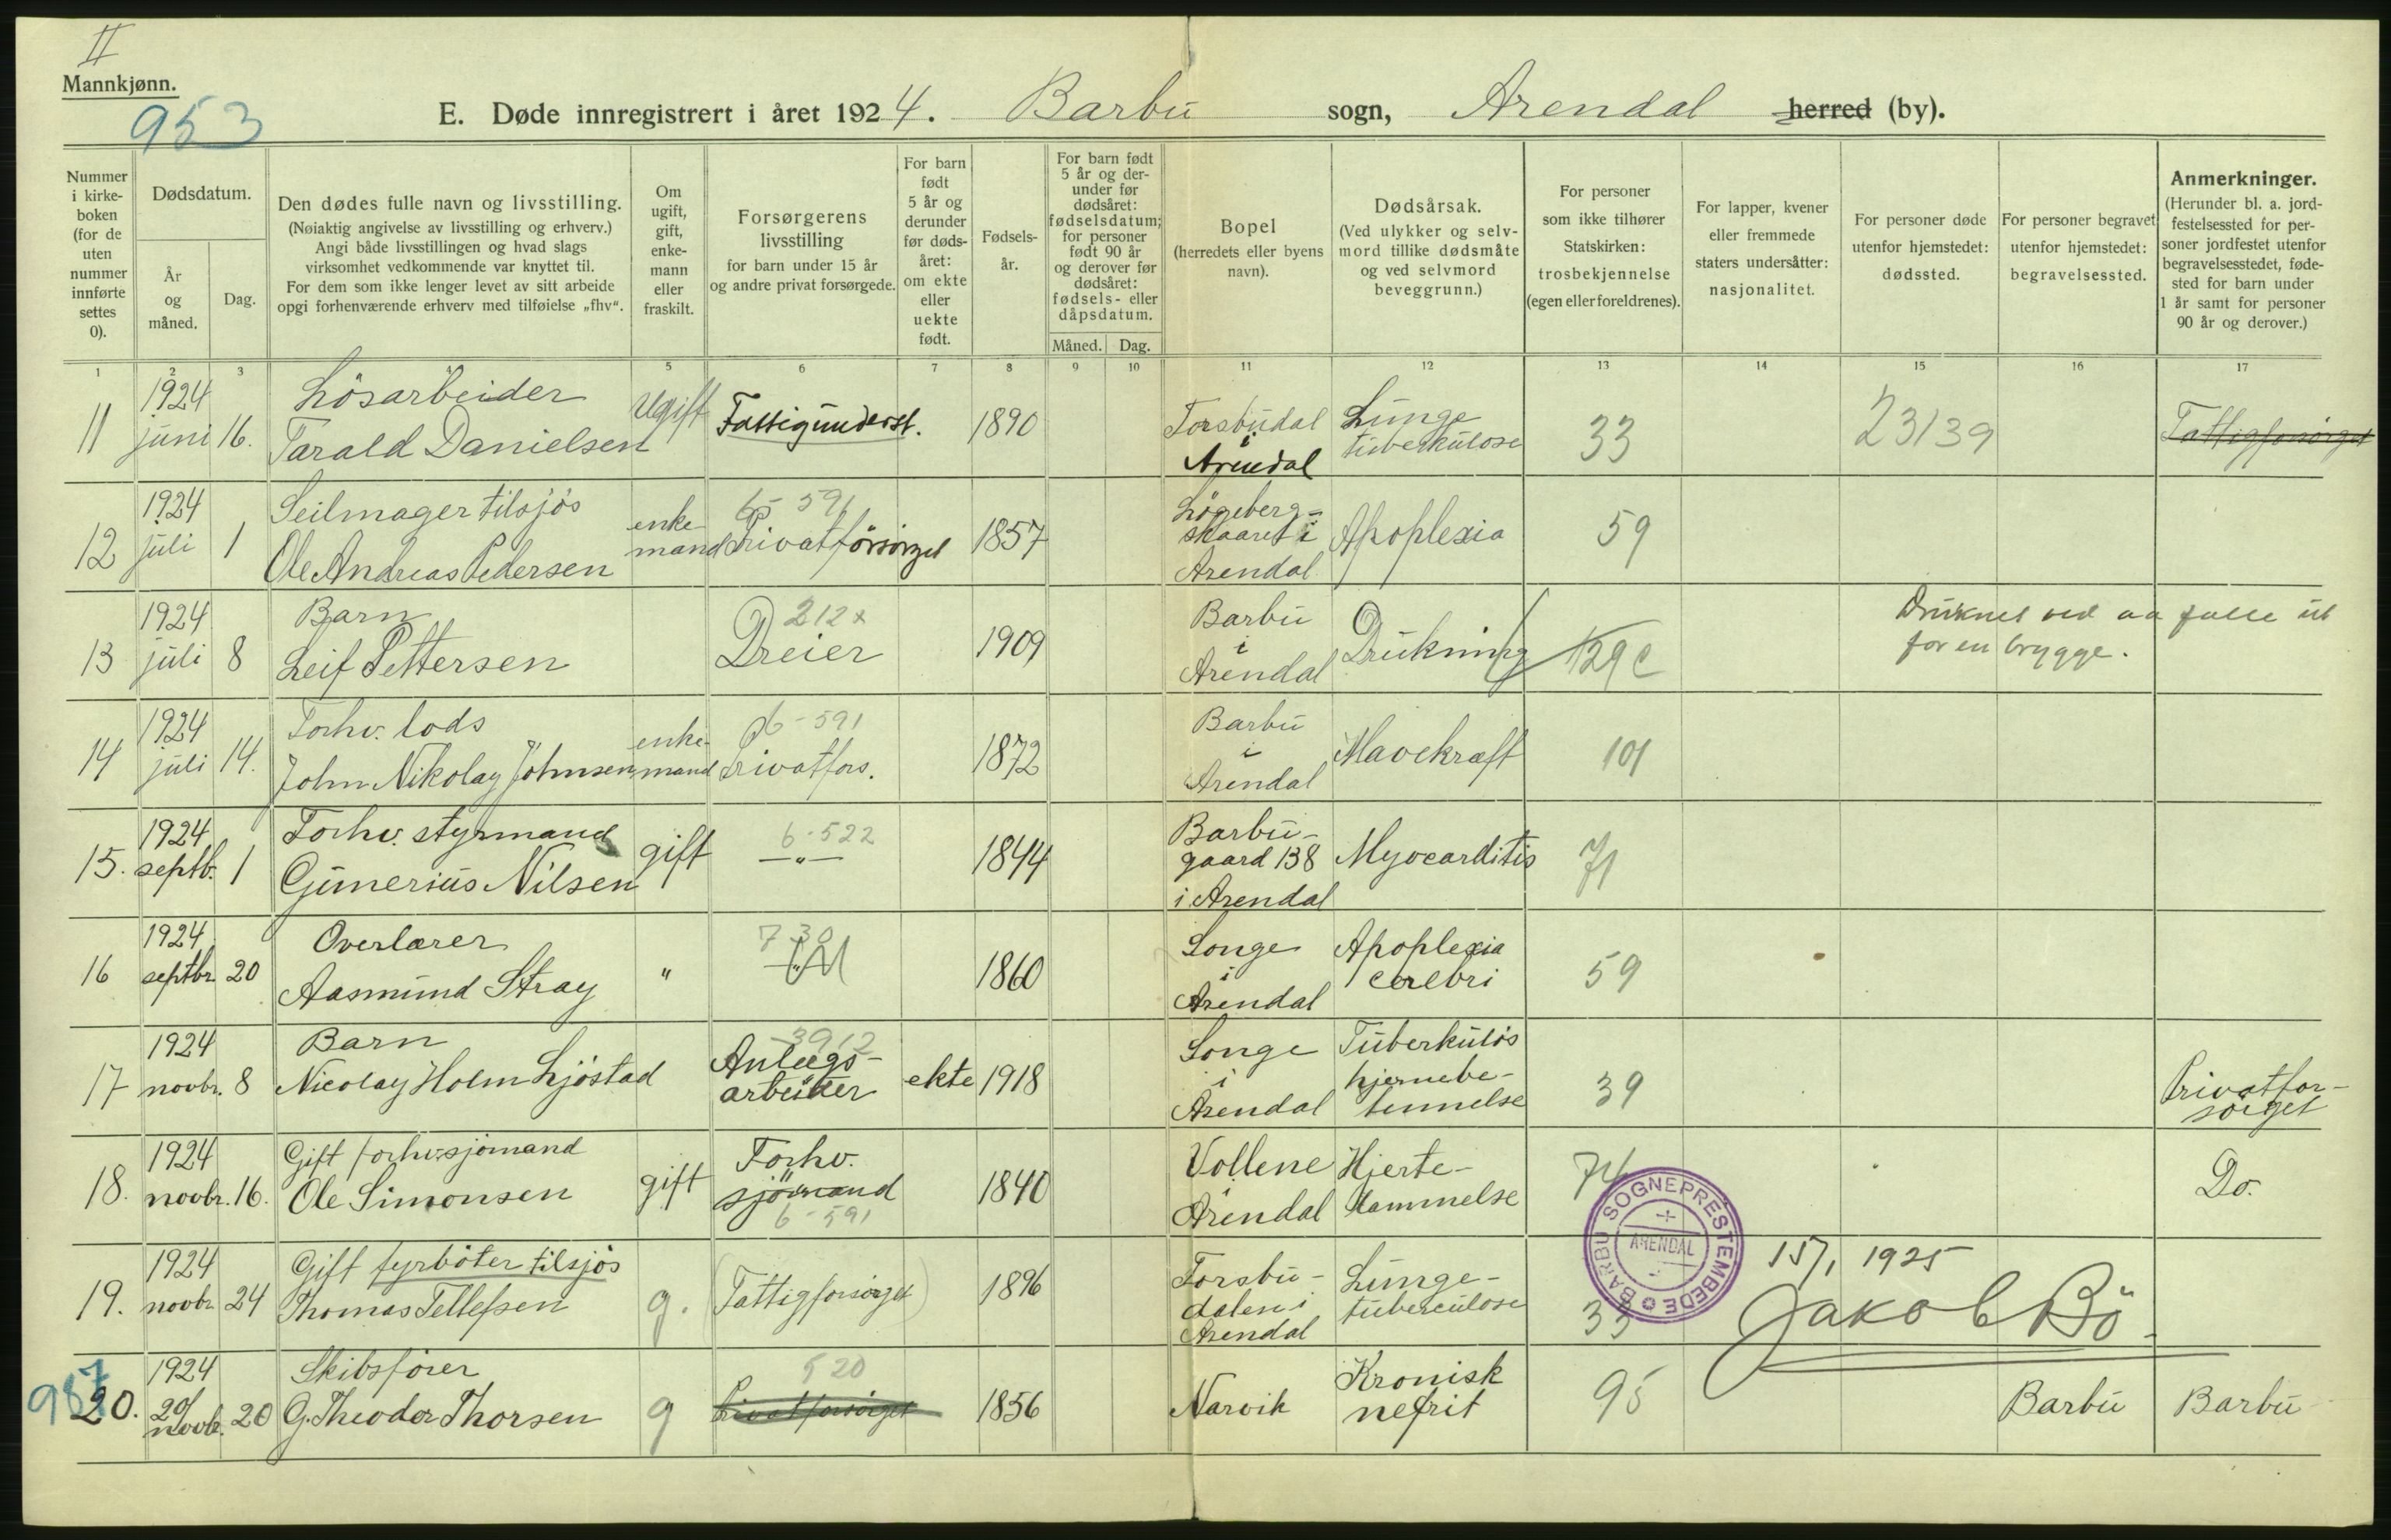 II
Mannkjønn.
953
E. Døde innregistrert i året 1924. Barbu sogn, Arendal herred (by).
Nummer i kirke- boken (for de uten nummer innførte settes 0).
Dødsdatum.
År og måned.
Dag.
Den dødes fulle navn og livsstilling.
(Nøiaktig angivelse av livsstilling og erhverv.)
Angi både livsstillingen og hvad slags
virksomhet vedkommende var knyttet til.
For dem som ikke lenger levet av sitt arbeide
opgi forhenværende erhverv med tilføielse „fhv“.
Om ugift, gift, enke- mann eller fraskilt.
Forsørgerens
livsstilling
for barn under 15 år
og andre privat forsørgede.
For barn født 5 år og derunder før døds- året: om ekte eller uekte født.
Fødsels- år.
For barn født 5 år og der- under før dødsåret: fødselsdatum; for personer født 90 år og derover før dødsåret: fødsels- eller dåpsdatum.
Måned. Dag.
Bopel
(herredets eller byens
navn).
Dødsårsak.
(Ved ulykker og selv-
mord tillike dødsmåte
og ved selvmord
beveggrunn.)
For personer
som ikke tilhører
Statskirken:
trosbekjennelse
(egen eller foreldrenes).
For lapper, kvener
eller fremmede
staters undersåtter:
nasjonalitet.
For personer døde
utenfor hjemstedet:
dødssted.
For personer begravet
utenfor hjemstedet:
begravelsessted.
Anmerkninger.
(Herunder bl. a. jord-
festelsessted for per-
soner jordfestet utenfor
begravelsesstedet, føde-
sted for barn under
1 år samt for personer
90 år og derover.)
1 2 3 5 6 7 8 9 10 11 12 13 14 15 16 17
11 1924 juni 16. Lösarbeider Tarald Danielsen Ugift Fattigunderst. 1890 Torsbudal i Arendal Lunge tuberkulose 33 23139 Fattigforsörget
12 1924 juli 1 Seilmager tilsjös Ole Andreas Pedersen enke- mand 6-591 Privatforsörget 1857 Lögeberg- skaaret i Arendal Apoplexia 59
13 1924 juli 8 Barn Leif Pettersen 212x Dreier 1909 Barbu i Arendal Drukning 129 c Druknet ved aa falle ut for en brygge.
14 1924 juli 14. Forhv. lods John Nikolay Johnsen enke- mand 6-591 Privatfors. 1872 Barbu i Arendal Mavekræft 101
15. 1924 septb. 1 Forhv. styrmand Gunerius Nilsen gift 6-522 —"— 1844 Barbu- gaard 138 i Arendal Myocarditis 71
16 1924 septbr. 20 Overlærer Aasmund Stray " 730 —"— 1860 Songe i Arendal Apoplexia cerebri 59
17 1924 novbr. 8 Barn Nicolay Holm Ljöstad 3912 Anlægs- arbeider ekte 1918 Songe i Arendal Tuberkulös hjernebe- tennelse 39 Privatfor- sörget
18. 1924 novbr. 16. Gift forhv. sjömand Ole Simonsen gift Forhv. sjömand 6-591 1840 Vollene i Arendal Hjerte- lammelse 74 Do.
19. 1924 novbr. 24 Gift fyrböter tilsjös Thomas Tellefsen g. (Fattigforsörget) 1896 Torsbu- dalen i Arendal Lunge- tuberculose 33
BARBU SOGNEPRESTEMBEDE ARENDAL
15/1 1925
Jakob Bö
987
20. 1924 20/ novbr. 20 Skibsfører G. Theodor Thorsen g 520 Privatforsörget 1856 Narvik Kronisk nefrit 95 Barbu Barbu